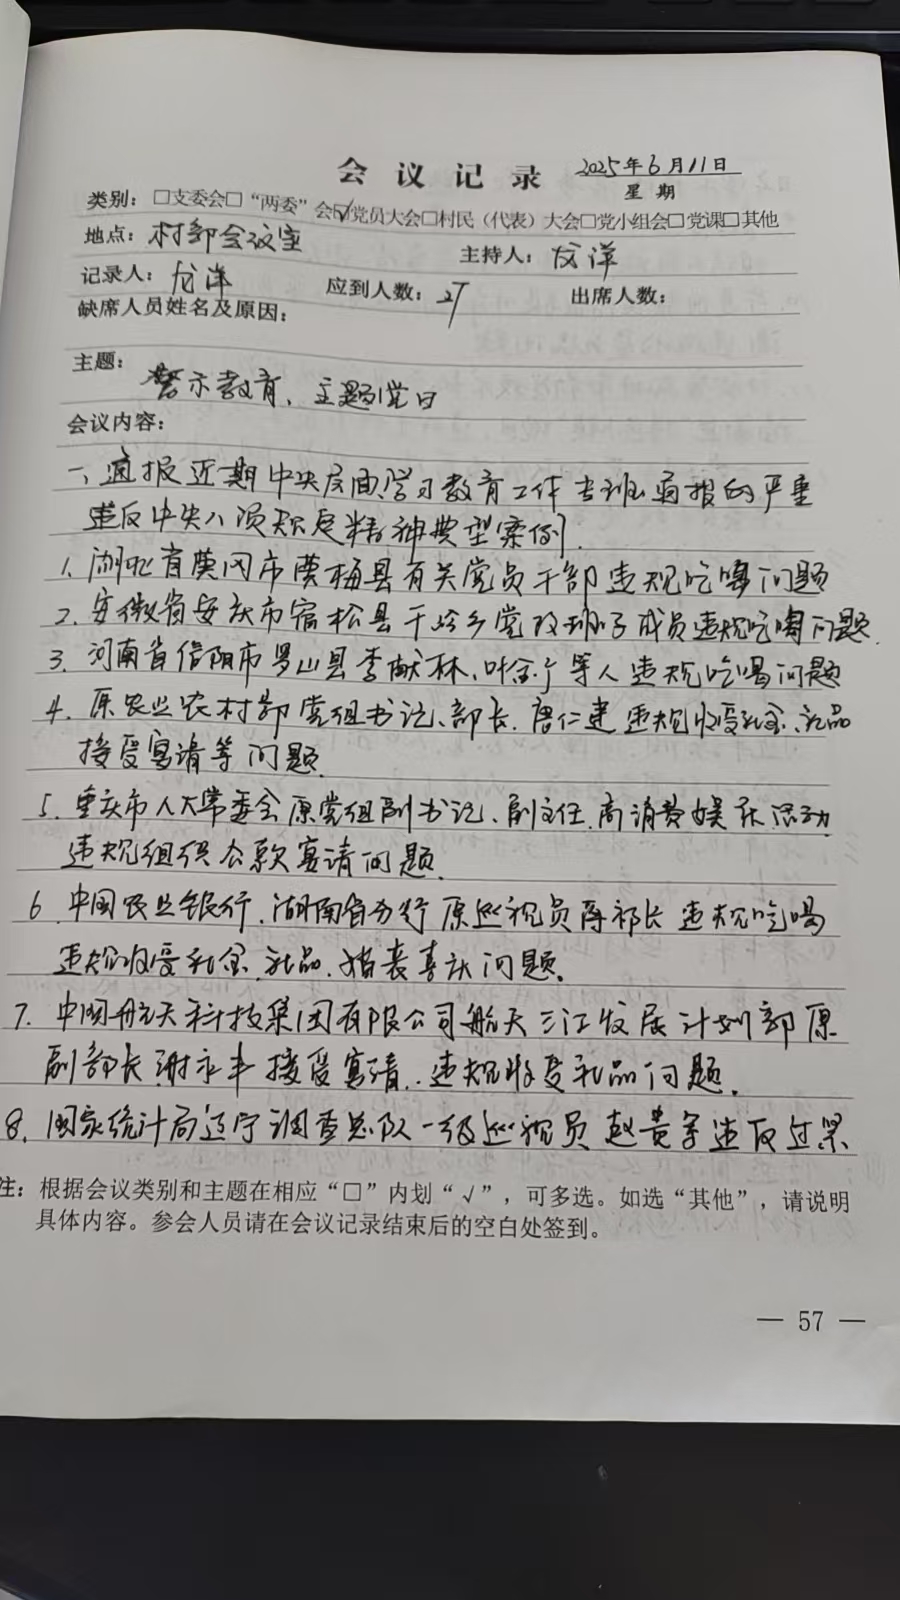 会议记录 2025年6月11日
星期
类别：□支委会□“两委”会☑党员大会□村民（代表）大会□党小组会□党课□其他
地点：村部会议室 主持人：龙洋
记录人：龙洋 应到人数：27 出席人数：
缺席人员姓名及原因：
主题：
警示教育、主题党日
会议内容：
一、通报近期中央层面学习教育工作专班通报的严重
违反中央八项规定精神典型案例.
1、湖北省黄冈市黄梅县有关党员干部违规吃喝问题
2、安徽省安庆市宿松县千岭乡党政班子成员违规吃喝问题.
3、河南省信阳市罗山县李献林、叶金广等人违规吃喝问题
4、原农业农村部党组书记、部长、唐仁建违规收受礼金、礼品
接受宴请等问题.
5、重庆市人大常委会原党组副书记、副主任.高消费娱乐活动
违规组织公款宴请问题.
6 中国农业银行.湖南省分行原巡视员蒋祁长违规吃喝
违规收受礼金、礼品.借丧喜庆问题.
7、中国航天科技集团有限公司航天三江发展计划部原
副部长谢永丰接受宴请、违规收受礼品问题.
8、国家统计局辽宁调查总队一级巡视员赵贵军违反过
注：根据会议类别和主题在相应“□”内划“√”，可多选。如选“其他”，请说明
具体内容。参会人员请在会议记录结束后的空白处签到。
— 57 —